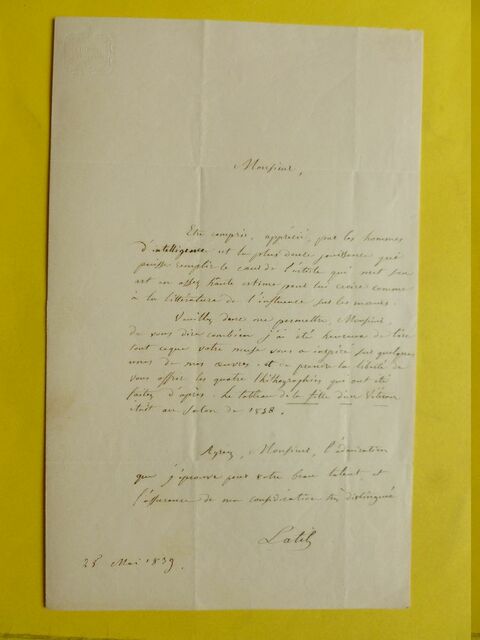 Monsieur,
Etre compris, apprécié, par les hommes
d'intelligence est la plus douce jouissance qui
puisse remplir le cœur de l'artiste qui met son
art en assez haute estime pour lui croire comme
à la littérature de l'influence sur les mœurs.
Veuillez donc me permettre, Monsieur,
de vous dire combien j'ai été heureux de lire
tout ce que votre muse vous a inspiré sur quelques
unes de mes œuvres et de prendre la liberté de
vous offrir les quatre lithographies qui ont été
faites d'après. Le tableau de la fille d'un
était au Salon de 1838.
Agréez, Monsieur, l'admiration
que j'éprouve pour votre beau talent et
l'assurance de ma considération très distinguée
Latil
25 Mai 1839.